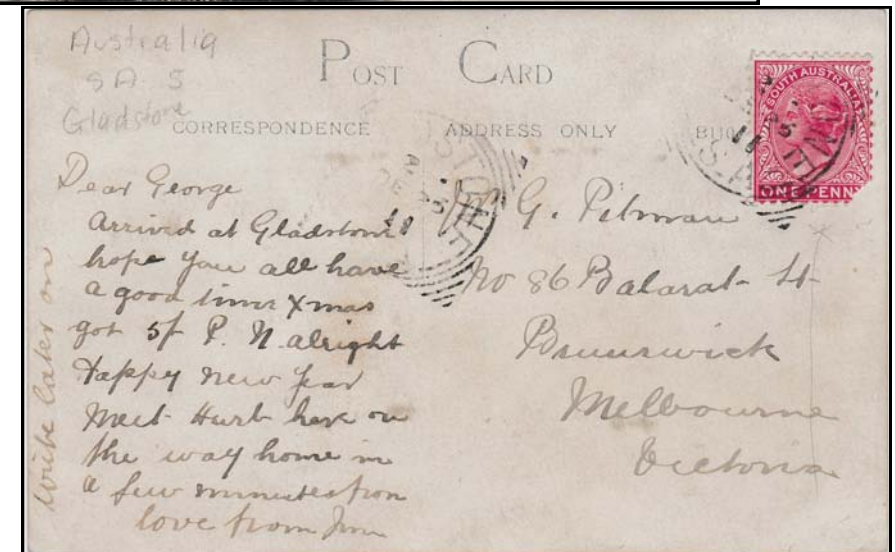 Australia
SA. S
Gladstone
POST CARD
CORRESPONDENCE
ADDRESS ONLY
SOUTH AUSTRALIA
ONE PENNY
Dear George
Arrived at Gladstone
hope you all have
a good time Xmas
got 5/ P. N. alright
Happy new year
Meet Hurb here on
the way home in
a few minutes from
love from Jim
write later on
G. Pitman
No 86 Balarat St
Brunswick
Melbourne
Victoria